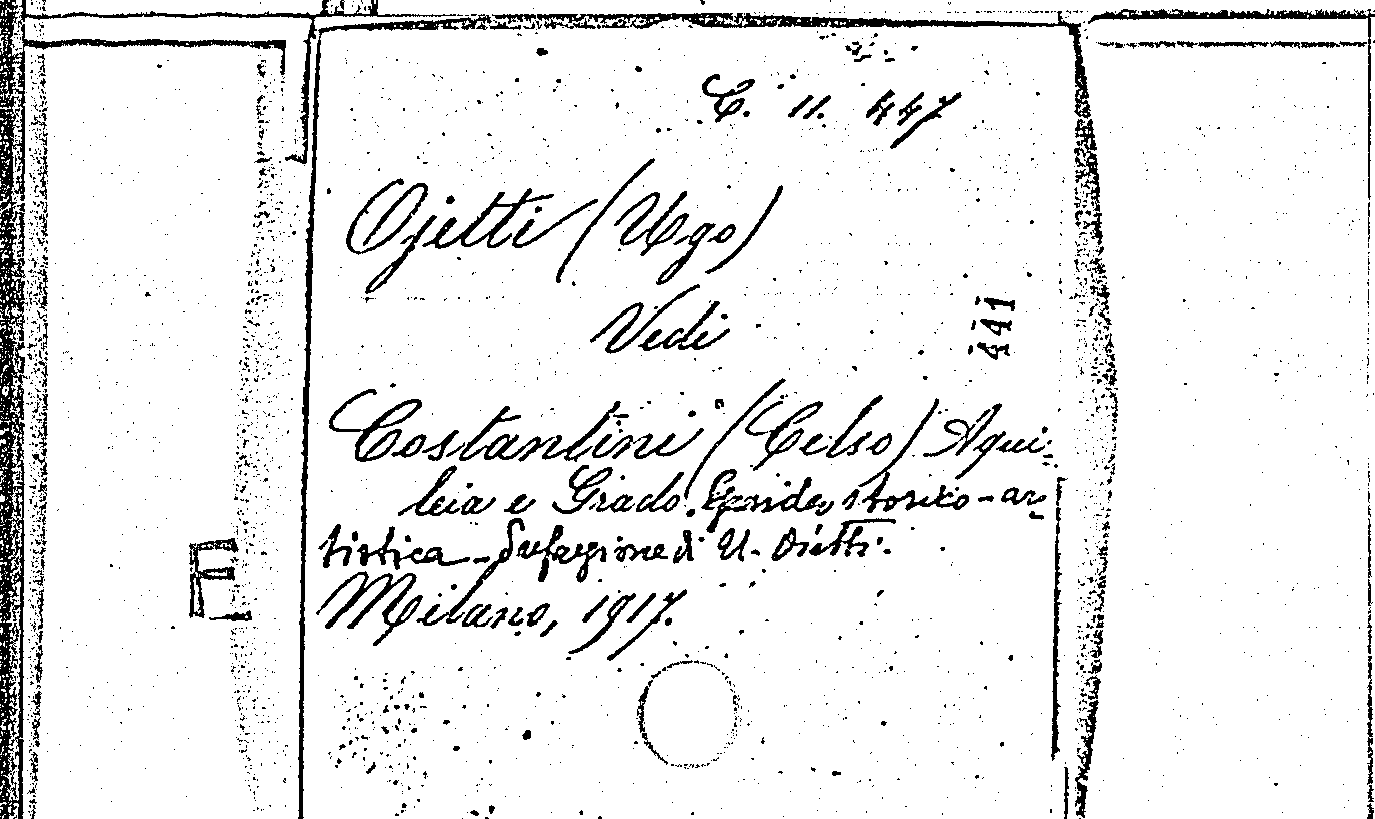 C. 11. 447
Ojetti (Ugo)
Vedi
441
Costantini (Celso) Aqui-
leia e Grado. Guida storico-ar-
tistica - Prefazione di U. Oietti.
E
Milano, 1917.